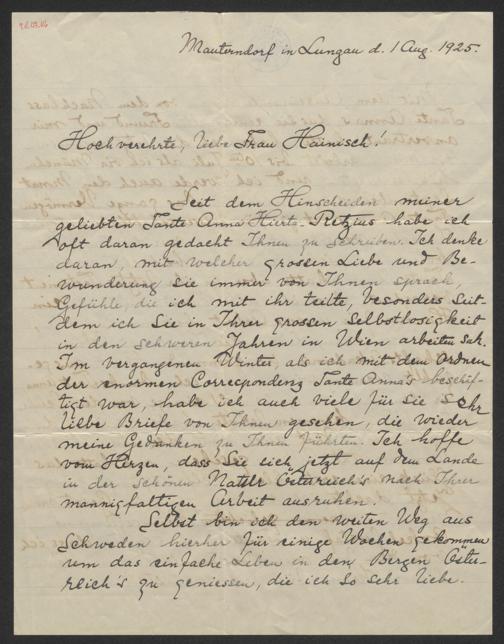 Mauterndorf in Lungau d. 1 Aug. 1925.
Hochverehrte, liebe Frau Hainisch!
Seit dem Hinscheiden meiner
geliebten Tante Anna Hierta-Retzius habe ich
oft daran gedacht Ihnen zu schreiben. Ich denke
daran, mit welcher grossen Liebe und Be-
wunderung sie immer von Ihnen sprach,
Gefühle die ich mit ihr teilte, besonders seit-
dem ich Sie in Ihrer grossen Selbstlosigkeit
in den schweren Jahren in Wien arbeiten sah.
Im vergangenen Winter, als ich mit dem Ordnen
der enormen Correspondenz Tante Anna's beschäf-
tigt war, habe ich auch viele für sie sehr
liebe Briefe von Ihnen gesehen, die wieder
meine Gedanken zu Ihnen führten. Ich hoffe
vom Herzen, dass Sie sich jetzt auf dem Lande
in der schönen Natur Österreich's nach Ihrer
mannigfaltigen Arbeit ausruhen.
Selbst bin ich den weiten Weg aus
Schweden hierher für einige Wochen gekommen
um das einfache Leben in den Bergen Öster-
reich's zu geniessen, die ich so sehr liebe.